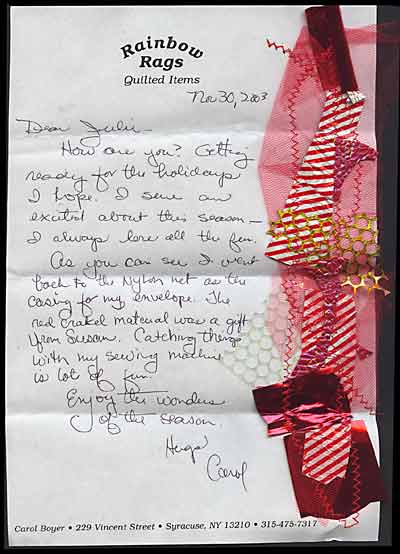 Rainbow
Rags
Quilted Items
Nov 30, 2003
Dear Julie -
How are you? Getting
ready for the holidays
I hope. I sure am
excited about this season -
I always love all the fun.
As you can see I went
back to the Nylon net as the
casing for my envelope. The
red material was a gift
from Susan. Catching things
with my sewing machine
is lot of fun.
Enjoy the wonders
of the season.
Hugs
Carol
Carol Boyer • 229 Vincent Street • Syracuse, NY 13210 • 315-475-7317